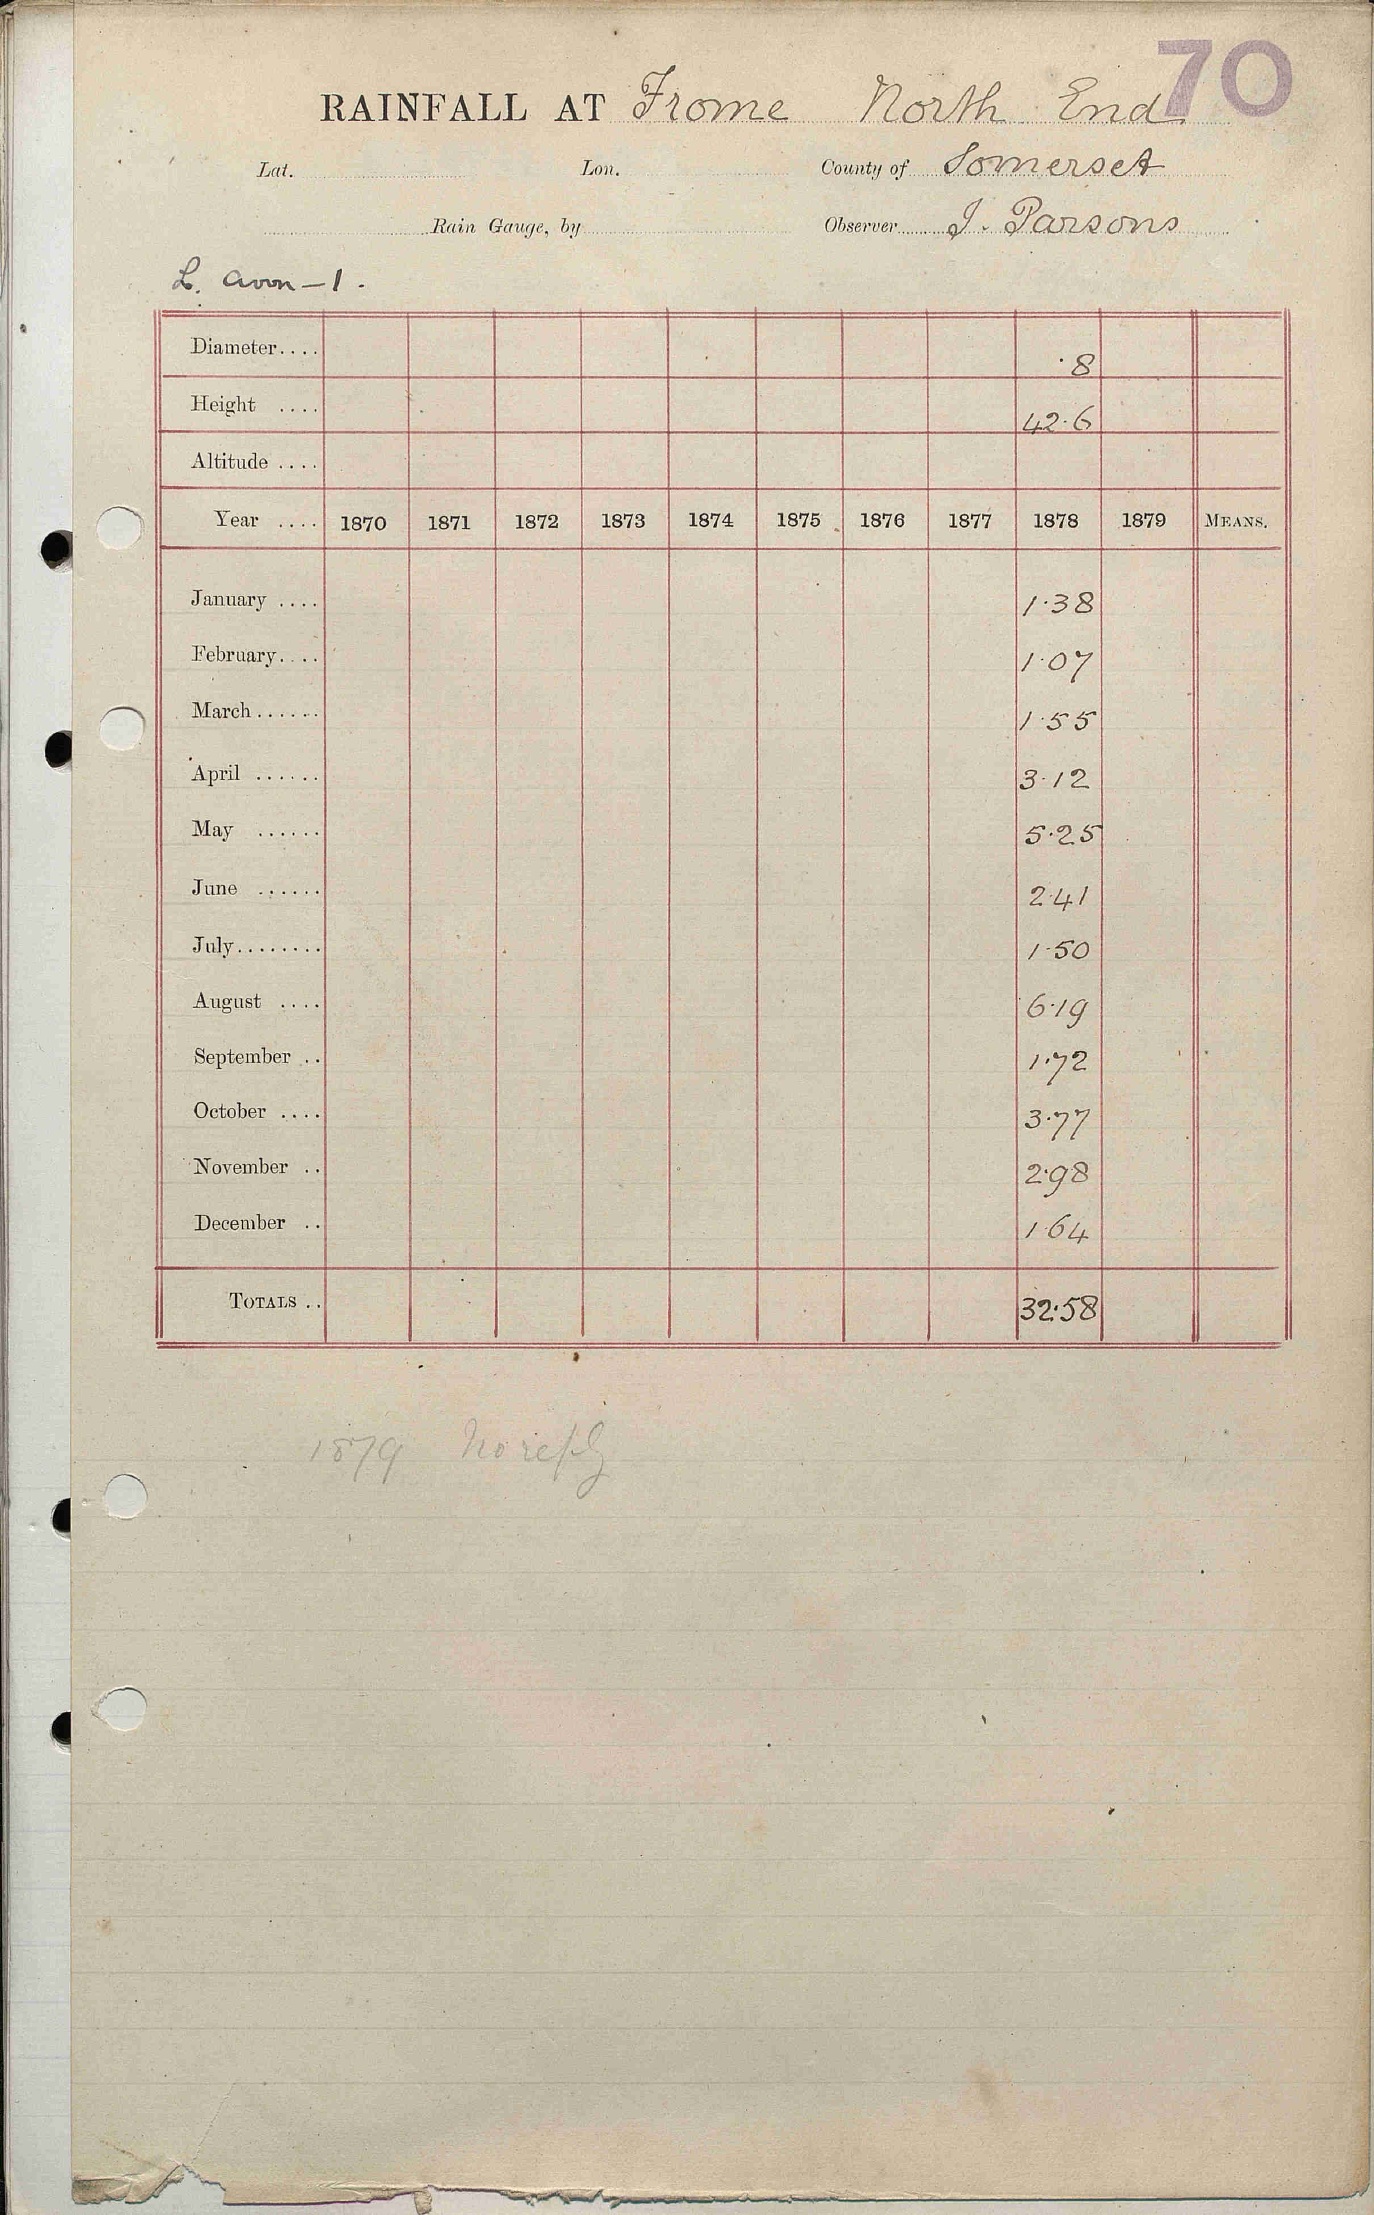 70
RAINFALL AT Frome North End
Lat. Lon. County of Somerset
Rain Gauge, by Observer J. Parsons
L. Avon - 1.
Diameter.... ·8
Height .... 42·6
Altitude ....
Year .... 1870 1871 1872 1873 1874 1875 1876 1877 1878 1879 MEANS.
January .... 1·38
February.... 1·07
March...... 1·55
April ...... 3·12
May ...... 5·25
June ...... 2·41
July........ 1·50
August .... 6·19
September .. 1·72
October .... 3·77
November .. 2·98
December .. 1·64
TOTALS .. 32·58
1879 No reply